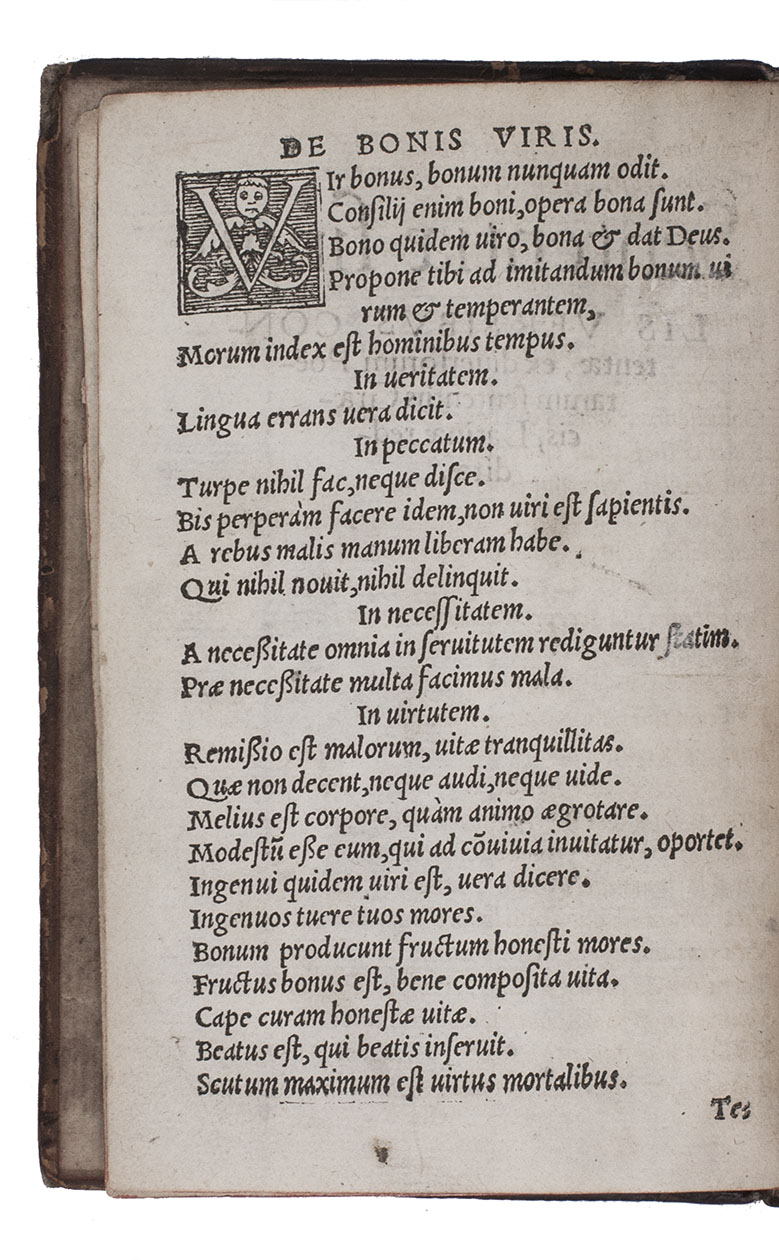 DE BONIS VIRIS.
VIr bonus, bonum nunquam odit.
Conſilij enim boni, opera bona ſunt.
Bono quidem uiro, bona & dat Deus.
Propone tibi ad imitandum bonum ui
rum & temperantem,
Morum index eſt hominibus tempus.
In ueritatem.
Lingua errans uera dicit.
In peccatum.
Turpe nihil fac, neque diſce.
Bis perperàm facere idem, non uiri eſt ſapientis.
A rebus malis manum liberam habe.
Qui nihil nouit, nihil delinquit.
In neceſſitatem.
A neceßitate omnia in ſeruitutem rediguntur ſtatim.
Præ neceßitate multa facimus mala.
In uirtutem.
Remißio eſt malorum, uitæ tranquillitas.
Quæ non decent, neque audi, neque uide.
Melius eſt corpore, quàm animo ægrotare.
Modeſtũ eße eum, qui ad cõuiuia inuitatur, oportet.
Ingenui quidem uiri eſt, uera dicere.
Ingenuos tuere tuos mores.
Bonum producunt fructum honeſti mores.
Fructus bonus eſt, bene compoſita uita.
Cape curam honeſtæ uitæ.
Beatus eſt, qui beatis inſeruit.
Scutum maximum eſt uirtus mortalibus.
Tes